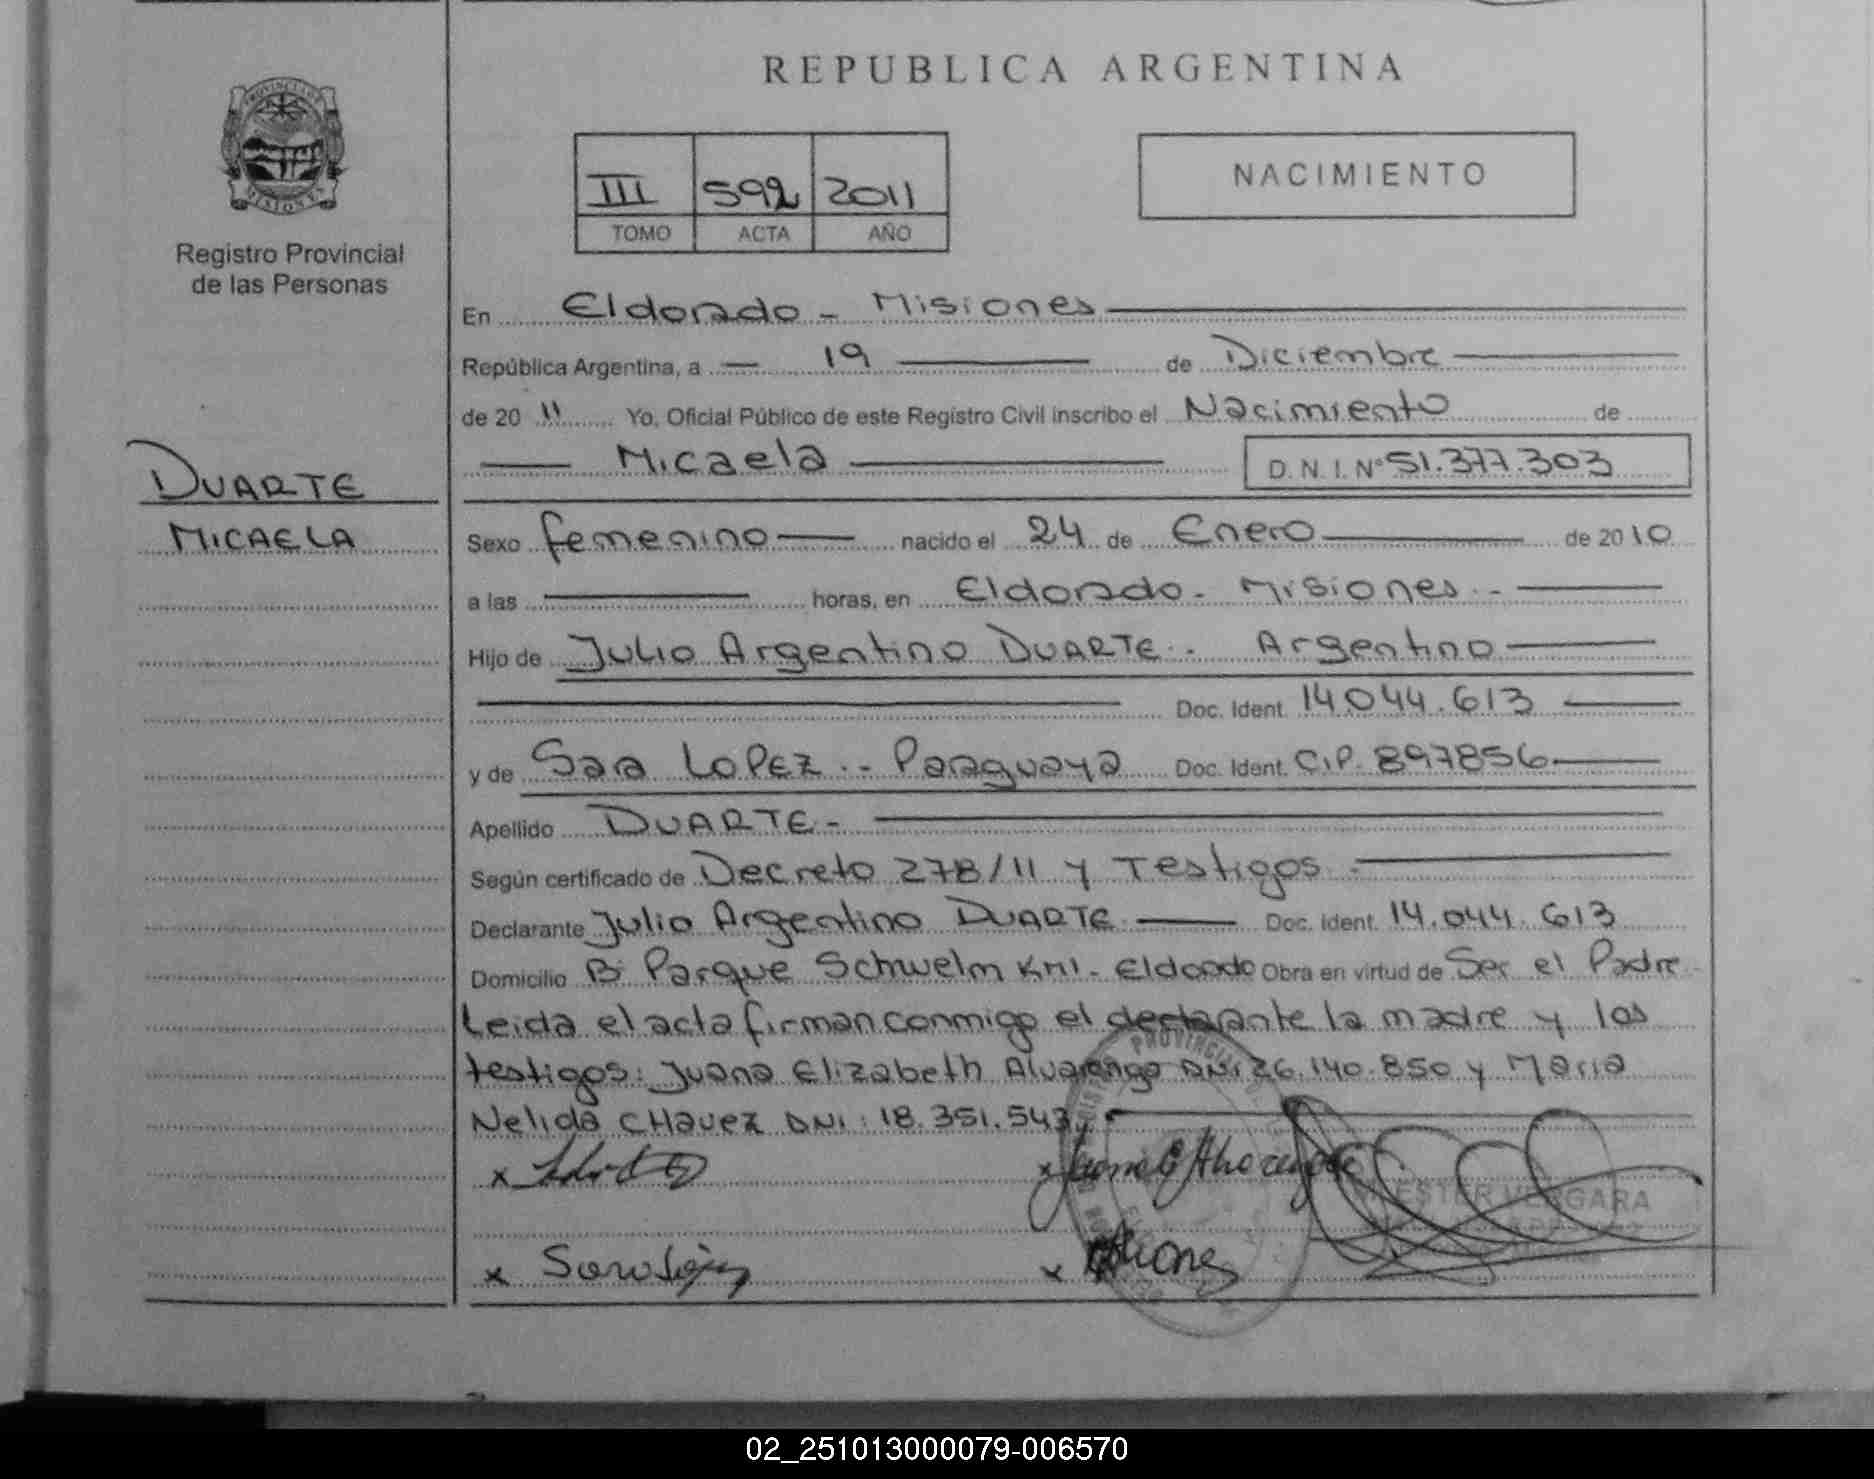 REPUBLICA ARGENTINA
Registro Provincial
de las Personas
III 592 2011
TOMO ACTA AÑO
NACIMIENTO
DUARTE
MICAELA
En Eldorado - Misiones
República Argentina, a 19 de Diciembre
de 20 11 Yo, Oficial Público de este Registro Civil inscribo el Nacimiento de
Micaela D.N.I. Nº 51.377.303
Sexo femenino nacido el 24 de Enero de 2010
a las horas, en Eldorado - Misiones -
Hijo de Julio Argentino DUARTE - Argentino
Doc. Ident. 14.044.613
y de Sara LOPEZ - Paraguaya Doc. Ident. C.P. 897856
Apellido DUARTE -
Según certificado de Decreto 278/11 y Testigos -
Declarante Julio Argentino DUARTE Doc. Ident. 14.044.613
Domicilio Bº Parque Schwelm Km1 - Eldorado Obra en virtud de Ser el Padre
Leida el acta firman conmigo el declarante la madre y los
testigos: Juana Elizabeth Alvarenga DNI 26.140.850 y Maria
Nelida CHavez DNI: 18.351.543
x
x
ESTER VERGARA
x Sara López
x
02_251013000079-006570